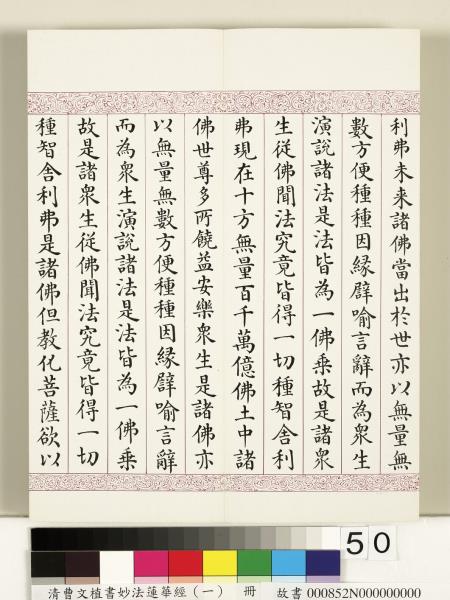 利弗未来諸佛當出於世亦以無量無
數方便種種因緣譬喻言辭而為眾生
演說諸法是法皆為一佛乘故是諸眾
生從佛聞法究竟皆得一切種智舍利
弗現在十方無量百千萬億佛土中諸
佛世尊多所饒益安樂眾生是諸佛亦
以無量無數方便種種因緣譬喻言辭
而為眾生演說諸法是法皆為一佛乘
故是諸眾生從佛聞法究竟皆得一切
種智舍利弗是諸佛但教化菩薩欲以
50
清曹文植書妙法蓮華經(一) 冊 故書 000852N000000000